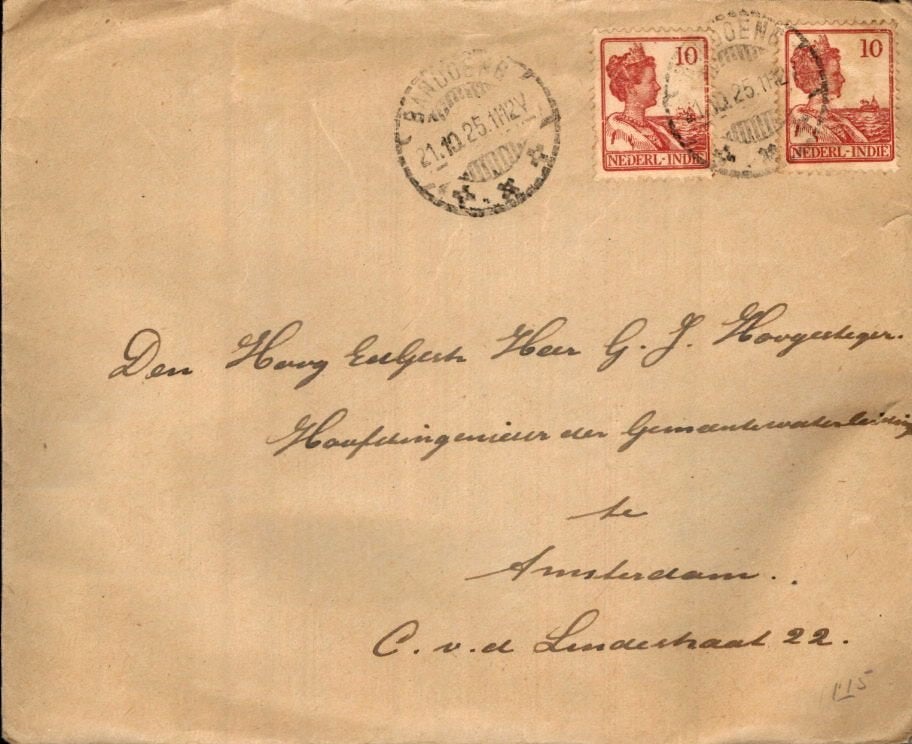 BANDOENG
21.10.25.11-12V
10
NEDERL-INDIE
BANDOENG
21.10.25.11-12V
10
NEDERL-INDIE
Den Hoog EdGestr Heer G. J. Hoogesteger.
Hoofdingenieur der Gemeentewaterleiding
te
Amsterdam..
C. v. d Lindestraat 22.
115